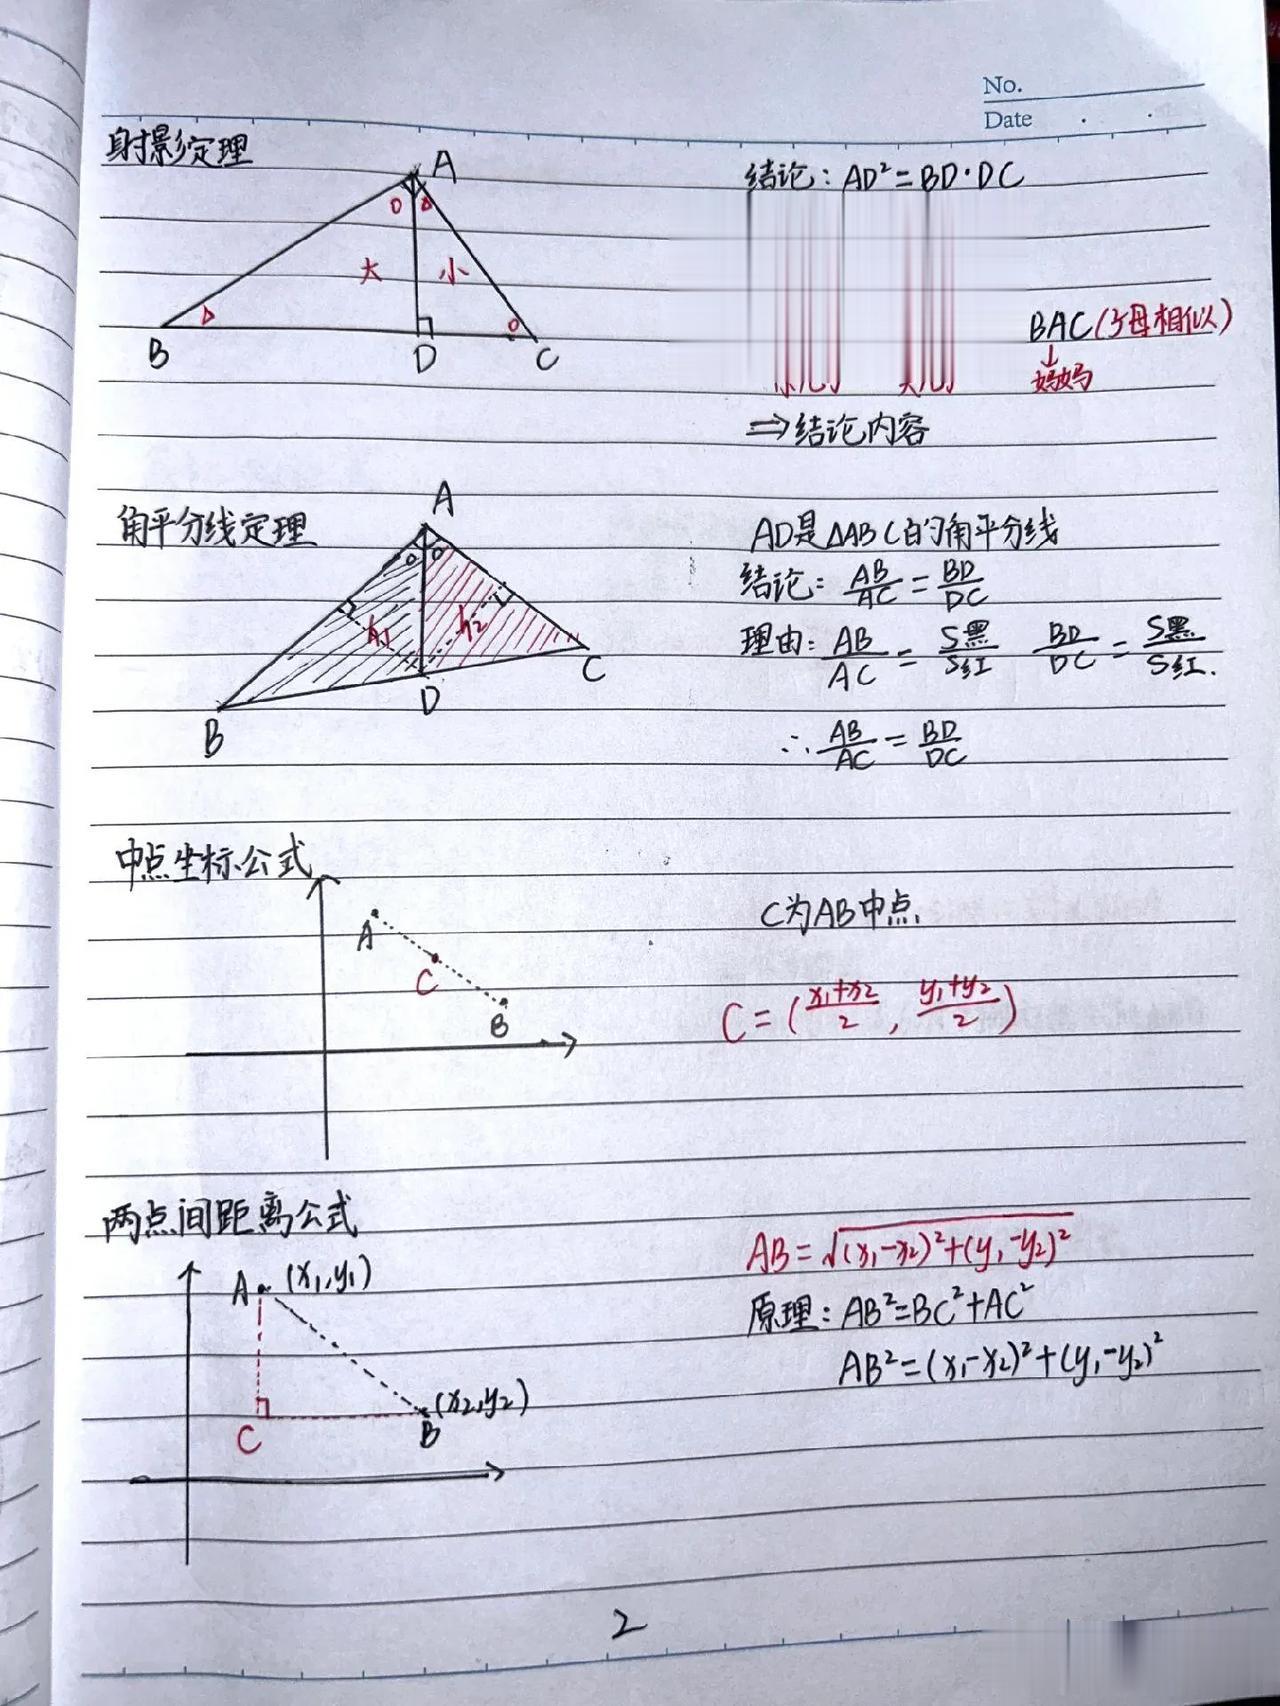 No.
Date
射影定理
A
O △
大 小
△ O
B D C
结论：AD²=BD·DC
BAC(子母相似)
↓
妈妈
⇒结论内容
角平分线定理
A
O O
h₁ h₂
B D C
AD是△ABC的角平分线
结论：AB/AC=BD/DC
理由：AB/AC=S黑/S红 BD/DC=S黑/S红.
∴AB/AC=BD/DC
中点坐标公式
A
C
B
C为AB中点
C=(x₁+x₂/2,y₁+y₂/2)
两点间距离公式
A (x₁,y₁)
(x₂,y₂)
C B
AB=√(x₁-x₂)²+(y₁-y₂)²
原理：AB²=BC²+AC²
AB²=(x₁-x₂)²+(y₁-y₂)²
2